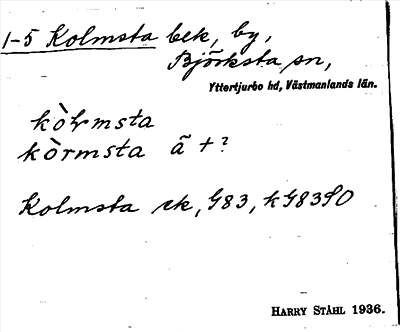 1-5 Kolmsta bek, by,
Björksta sn,
Yttertjurbo hd, Västmanlands län.
kòłmsta
kòrmsta ã + ?
Kolmsta ek, G83, kG83
HARRY STÅHL 1936.